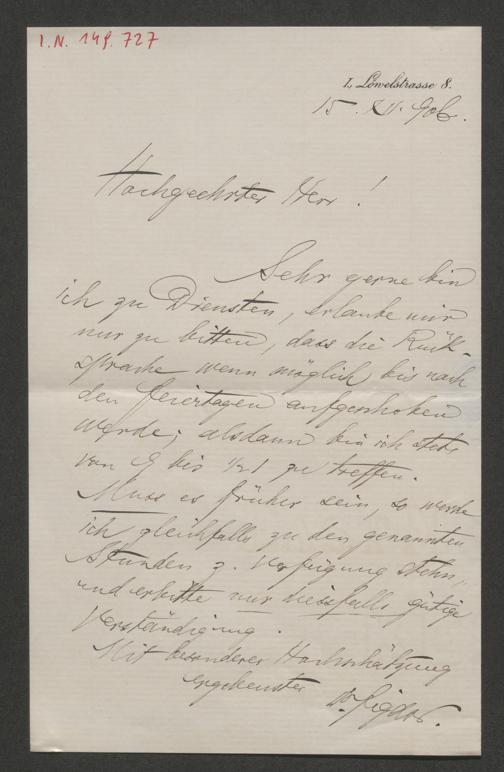 I. N. 149.727
I., Löwelstrasse 8.
15. XII. 906.
Hochgeehrter Herr!
Sehr gerne bin
ich zu Diensten, erlaube mir
nur zu bitten, dass die Rück-
sprache wenn möglich bis nach
den Feiertagen aufgeschoben
werde; alsdann bin ich stets
von 9 bis ½1 zu treffen.
Muss es früher sein, so werde
ich gleichfalls zu den genannten
Stunden z. Verfügung stehn,
und erbitte nur diesfalls gütige
Verständigung.
Mit besonderer Hochschätzung
ergebenster
Dr. Figdor.